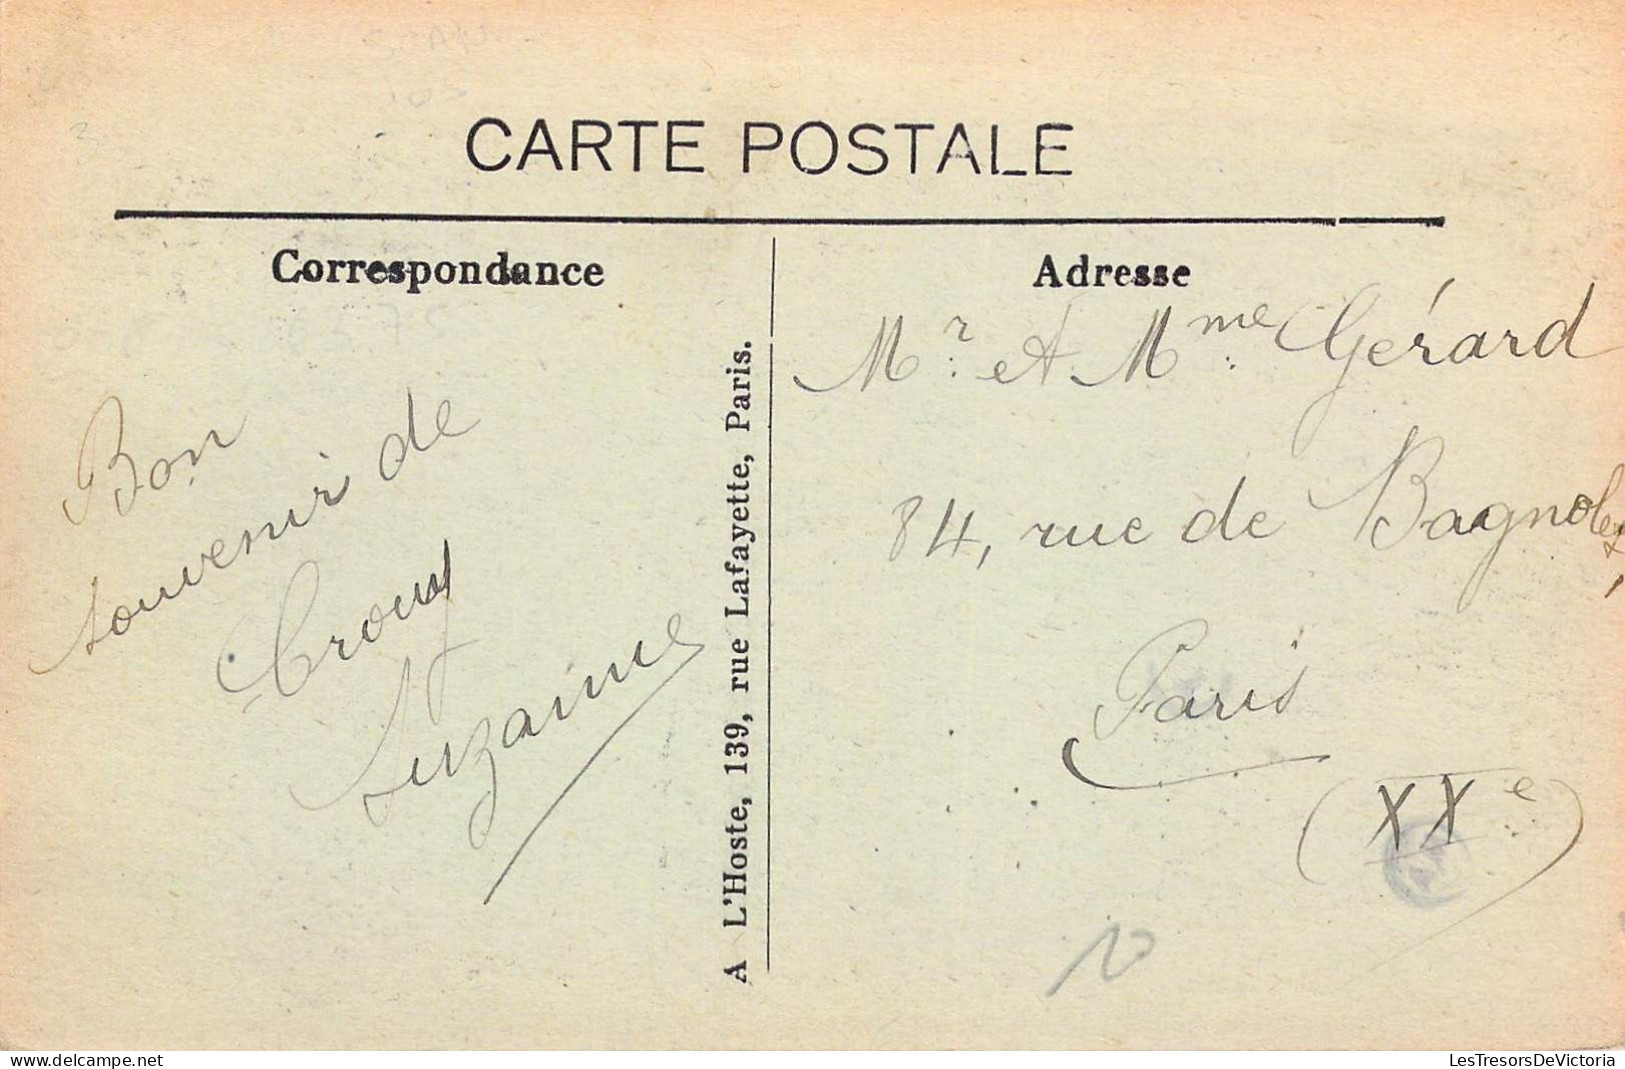 CARTE POSTALE
Correspondance
Bon
souvenir de
Crouy
Suzanne
A L'Hoste, 139, rue Lafayette, Paris.
Adresse
Mr. et Mme. Gérard
84, rue de Bagnolet,
Paris
(XXe)
LesTresorsDeVictoria